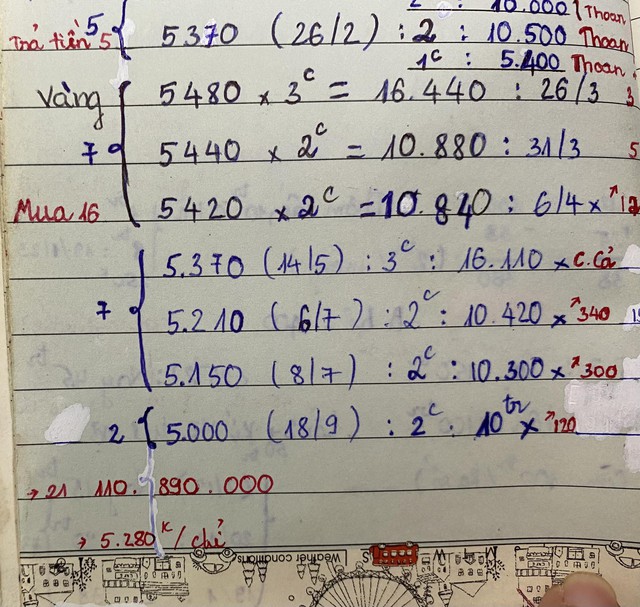 2 : 10.000 Thoan
Trả tiền 5 5 5370 (26/2) : 2 : 10.500 Thoan
1c : 5.400 Thoan
Vàng 5480 x 3c = 16.440 : 26/3 3
7 5440 x 2c = 10.880 : 31/3 5
Mua 16 5420 x 2c = 10.840 : 6/4 x ↗12
5.370 (14/5) : 3c : 16.110 x c.Cả
7 5.210 (6/7) : 2c : 10.420 x ↗340
5.150 (8/7) : 2c : 10.300 x ↗300
2 5.000 (18/9) : 2c : 10tr x ↗120
→ 21 110.890.000
→ 5.280k/chỉ
Weather conditions